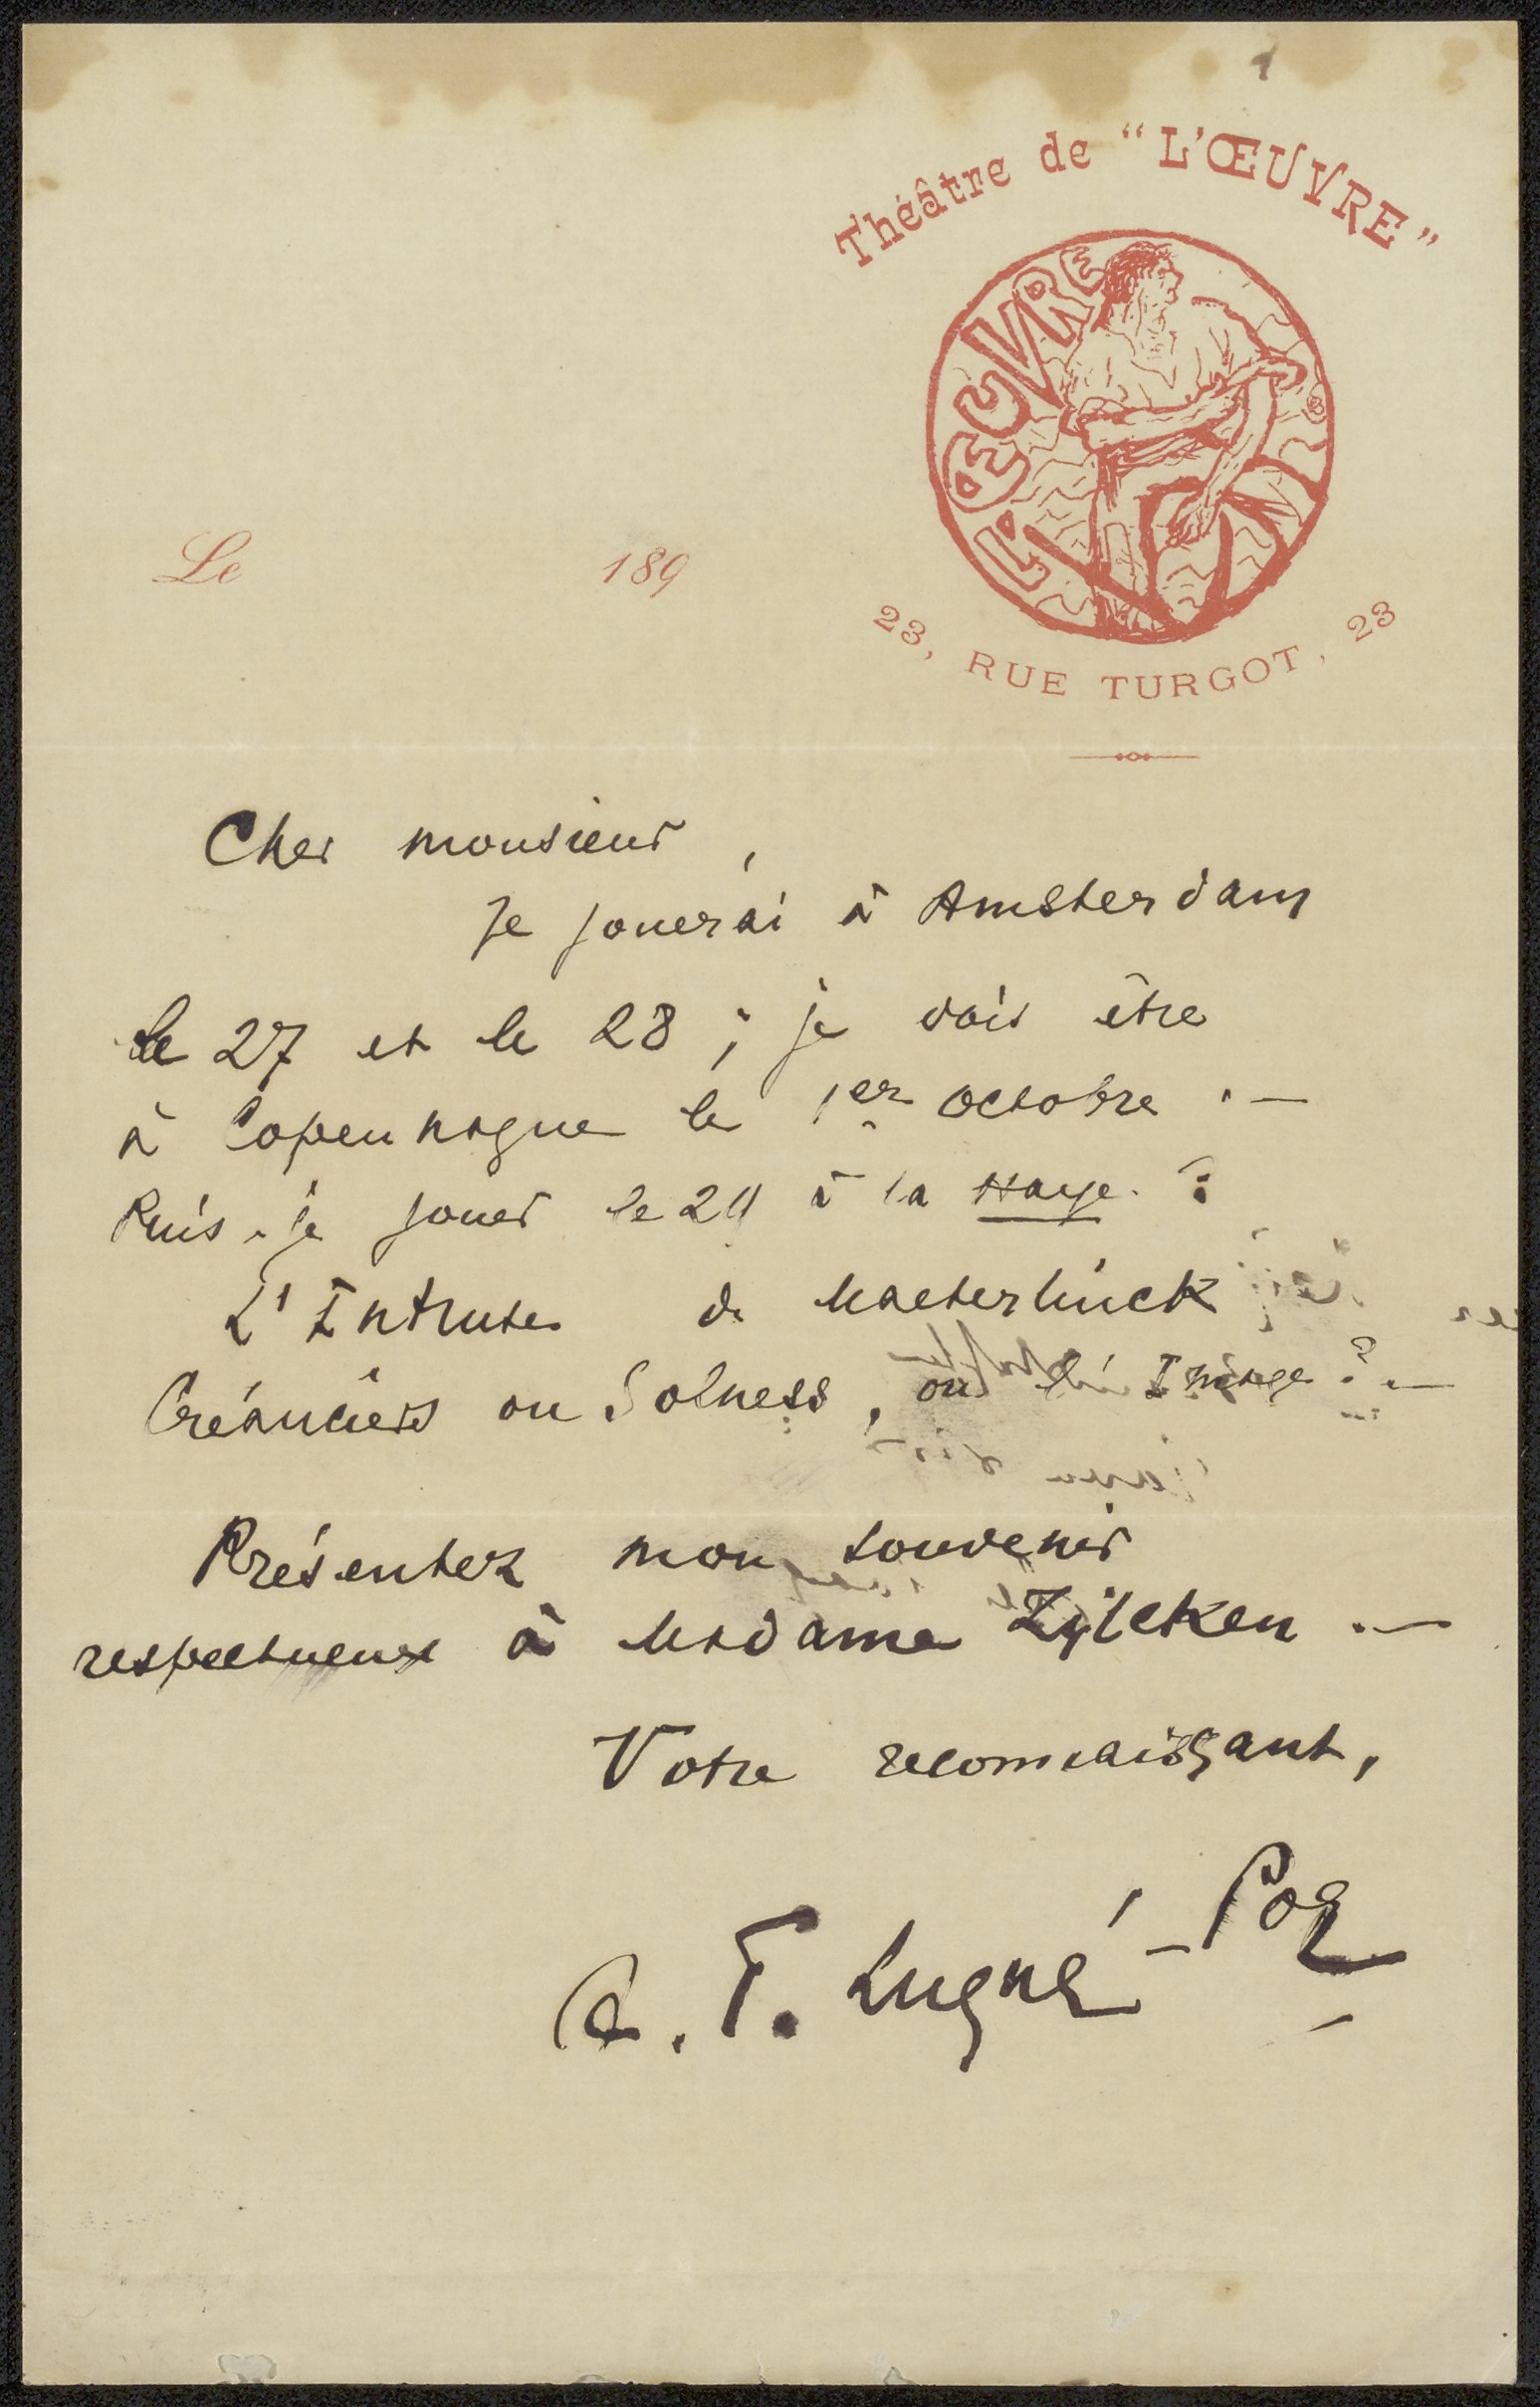 Théâtre de "L'ŒUVRE"
L'ŒUVRE
Le 189
23, RUE TURGOT, 23
Cher monsieur,
Je jouerai à Amsterdam
le 27 et le 28 ; je dois être
à Copenhague le 1er octobre . —
Puis-je jouer le 24 à la Haye. ?
L'Intruse de Maeterlinck
Créanciers ou Solness, ou l'Image ? . —
Présentez mon souvenir
respectueux à Madame Zilcken . —
Votre reconnaissant,
A. F. Lugné-Poe